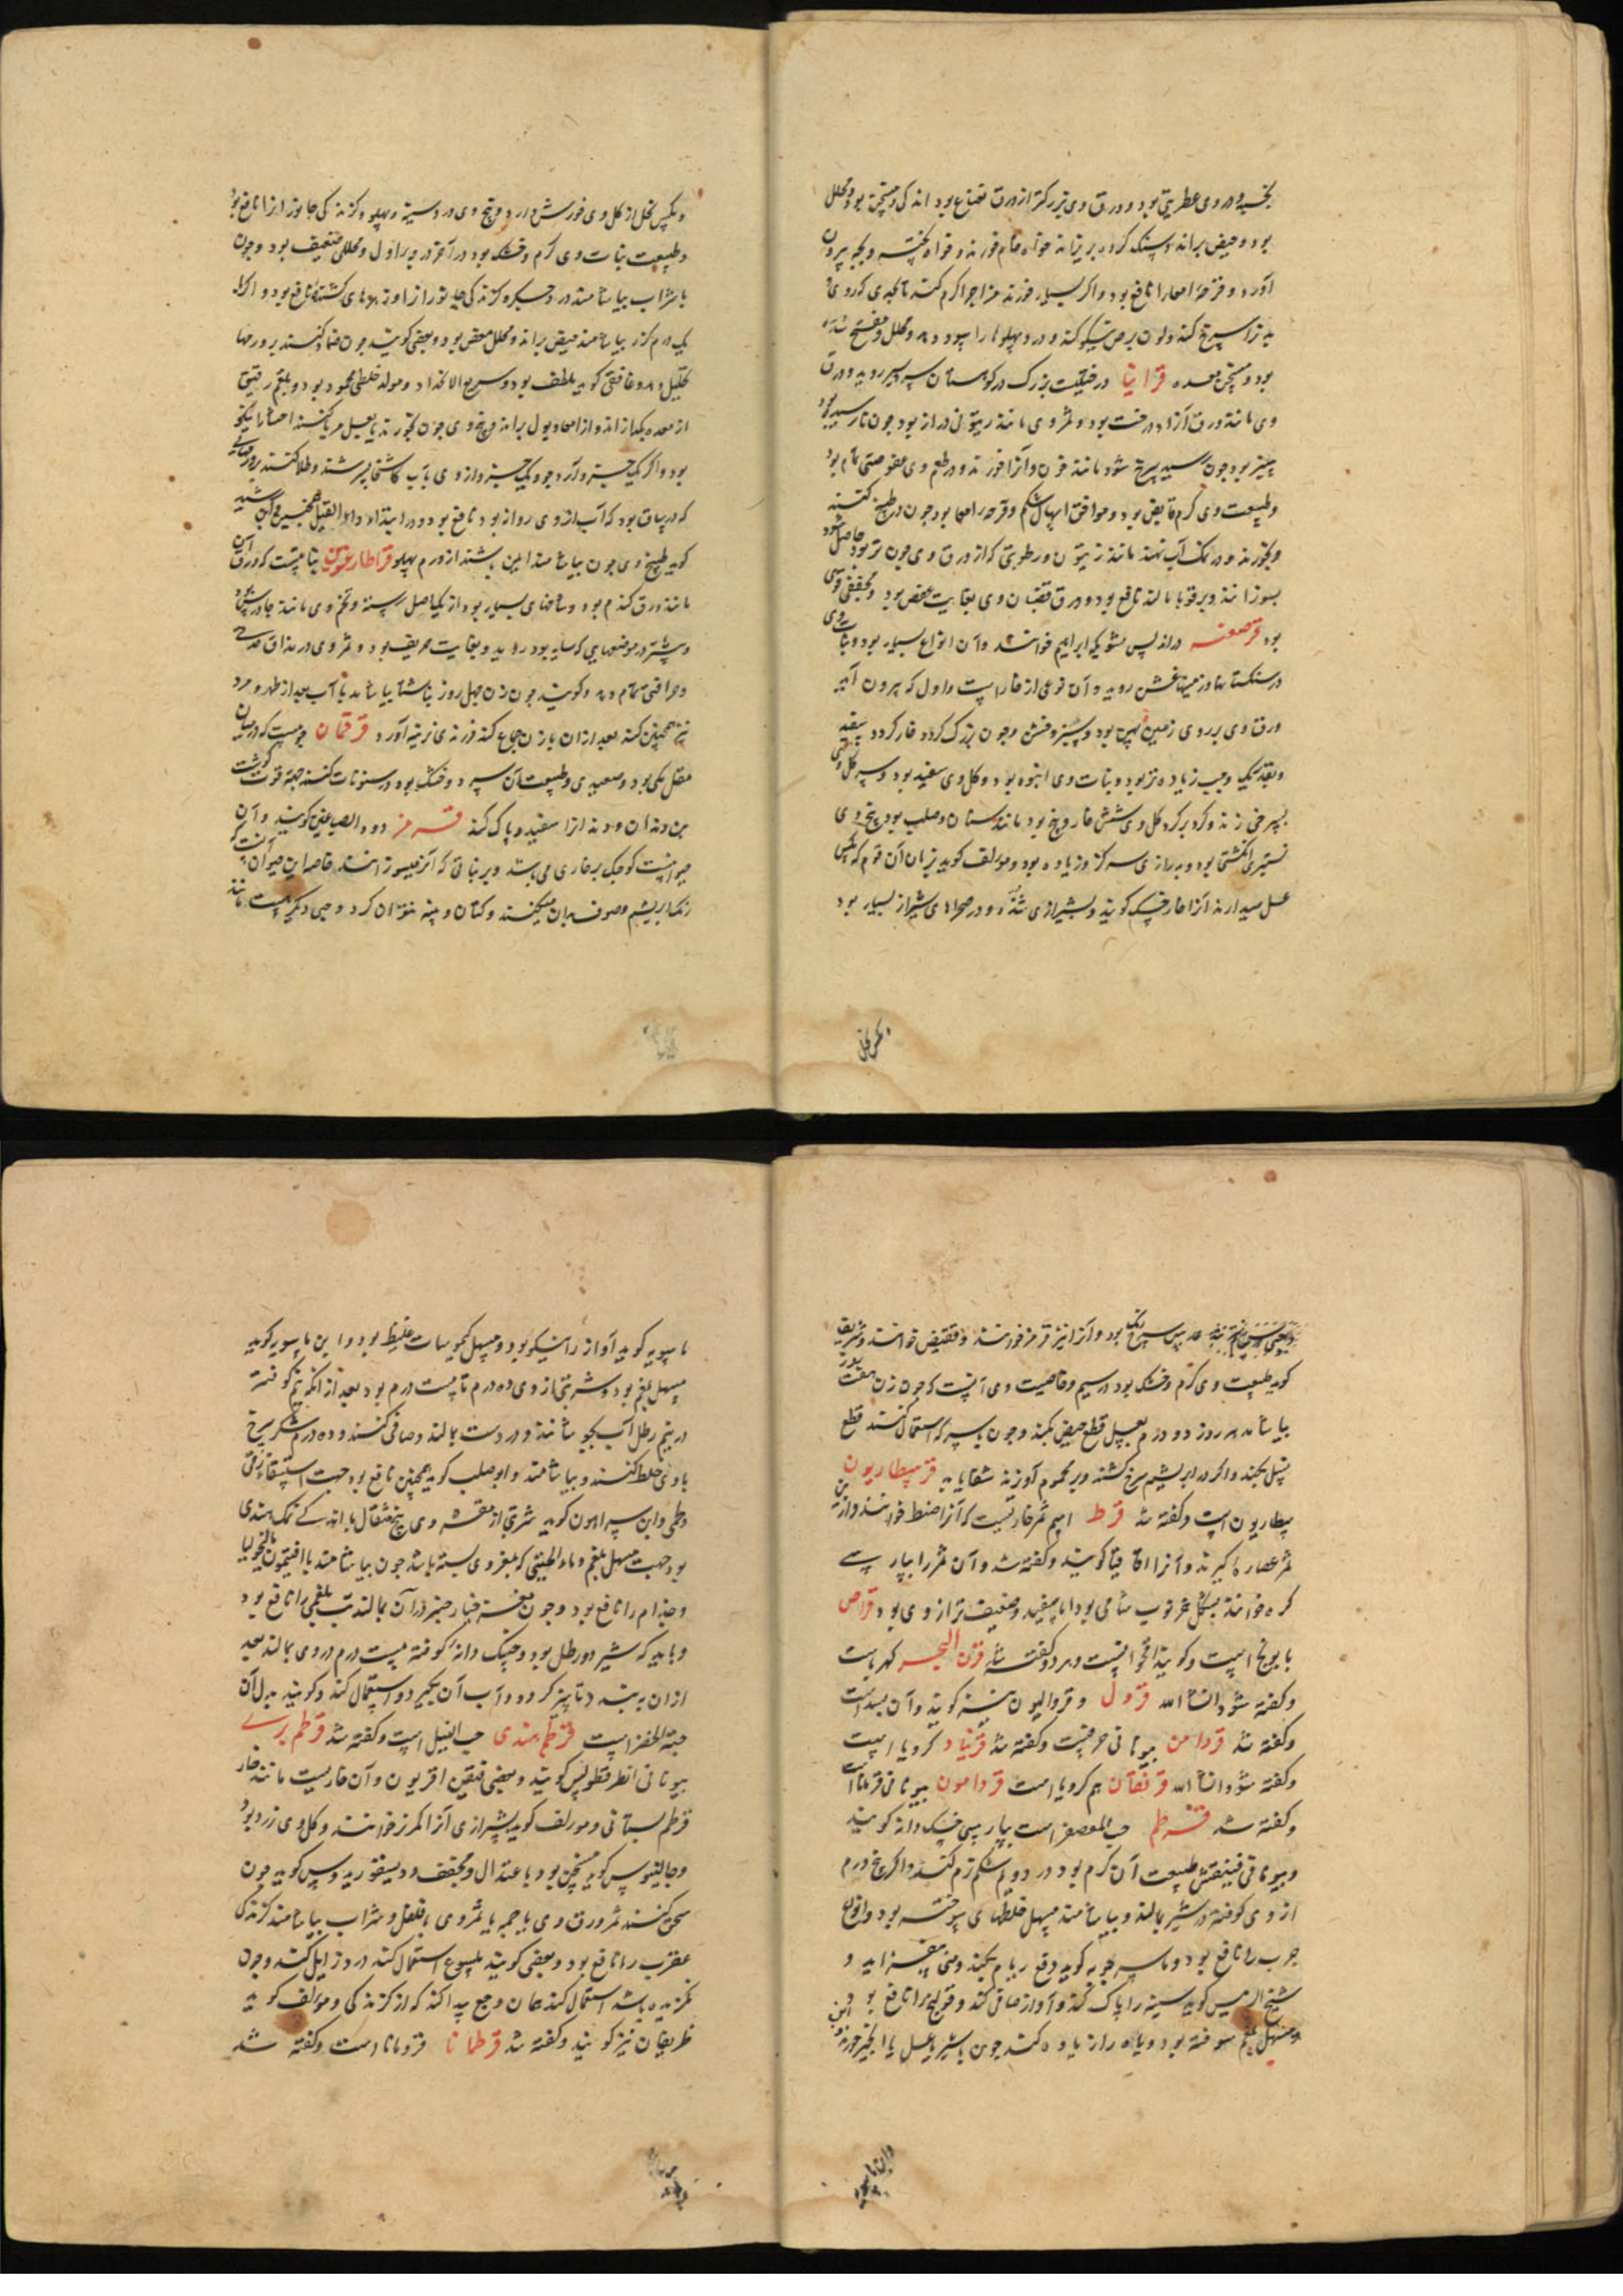 بود و حیض براند و سنک کرده بریزاند خواه خام خورند و خواه پخته و بچه بیرون
آورد و قرحهٔ امعا را نافع بود و اگر بسیار خورند مزاج را گرم کند
بود و مسخن معده قرانیا درختیست بزرک در کوهستان سردسیر روید و ورق
وی مانند ورق آزاددرخت بود و ثمر وی مانند زیتونی دراز بود چون نارسیده بود
سبز بود چون برسد سرخ شود مانند خون و آنرا خورند و در طعم وی عفوصتی تمام بود
و طبیعت وی گرم و قابض بود و موافق اسهال شکم و قرحه امعا بود چون در طبیخ کنند
و بخورند و در نمک آب نهند مانند زیتون و رطوبتی که از ورق وی چون تر بود حاصل شود
بسوزانند و بر قوبا مالند نافع بود و ورق قضبان وی بغایت عفص بود و مجففی قوی
بود قرصعنه در اندلس شویکه ابراهیم خوانند و آن انواع بسیار بود و نبات وی
در سنکستانها و زمینها خشن روید و آن نوعی از خار است و اول که بیرون آید
ورق وی بر روی زمین پهن بود و سبز و خشن و چون بزرک کردد خار کردد سفید
و بقد یک وجب زیاده تر بود و نبات وی انبوه بود و کل وی سفید بود و
بسرخی زند و کرد بر کرد کل وی شش خار و پنج بود مانند سنان و صلب بود و بیخ وی
بستبری انکشتی بود و درازی سه کز و زیاده بود و مؤلف کوید بزبان آن قوم که مکس
عسل میدارند آنرا خار خسک کویند و بشیرازی و در صحرای شیراز بسیار بود
و مکس نحل از کل وی خورش دارد و بیخ وی درد سینه و پهلو و کزندکی جانوران را نافع بود
و طبیعت نبات وی گرم و خشک بود در آخر درجه اول و محللی ضعیف بود و چون
با شراب بیاشامند درد جگر و کزندکی جانوران را و زهرهای کشنده نافع بود و اکر
یکدرم از کزر بیاشامند حیض براند و محلل مغص بود و بعضی کویند چون ضماد کنند بر ورمها
تحلیل دهد و غافقی کوید ملطف بود و سریع الانحدار و مولد خلطی محمود بود و بلغم رقیق
از معده بکدازاند و از امعا و بول براند و بیخ وی چون بخورند بعسل مربا کنند احشا را نیکو
بود و اگر یک جزء آرد جو و یک جزء از وی بآب کاسنی بسرشند و طلا کنند بر ورمهایی
که در ساق بود که آب از وی روانه بود نافع بود و در ابتداء داء الفیل همچنین و ابن رشید
کوید طبیخ وی چون بیاشامند ایمن باشند از ورم پهلو قراطارغونس نباتیست که ورق آن
مانند ورق کندم بود و شاخهای بسیار بود از یک اصل رسته و تخم وی مانند جاورس بود
و بیشتر در موضعهایی که سایه بود روید و بغایت حریف بود و ثمر وی در مذاق
و حرافتی تمام دهد و کویند چون زن چهل روز ناشتا بیاشامد با آب بعد از طهر و مرد
نیز همچنین کند بعد از آن با زن جماع کند فرزندی نرینه آورد قرقمان چوبیست که در میان
مقل مکی بود و صعیدی و طبیعت آن سرد و خشک بود و در سنونات کنند جهة قوت کوشت
بن دندان و دندان را سفید و پاک کند قرمز دود الصباغین کویند و آن
حیوانیست کوچک بر خاری می باشد و بر نباتی که آنرا میسوزانند خاصه این حیوان آنست که
رنک ابریشم و صوف بدان میکنند و کتان و پنبه نتوان کرد و حبی دیکر هست مانند
عدس سرخ رنک بود و آنرا نیز قرمز خوانند و فقیض خوانند و شریف
کوید طبیعت وی گرم و خشک بود در سیم و خاصیت وی آنست که چون زن هفت روز
بیاشامد هر روز دو درم بعسل قطع حیض بکند و چون بسرکه استعمال کنند قطع
نسل بکند و اگر در ابریشم سرخ کشند و بر محموم آویزند شفا یابد قرسطاریون
سطاریون است و کفته شد قرط اسم ثمر خاریست که آنرا صنط خوانند و از این
ثمر عصاره کیرند و آنرا اقاقیا کویند و کفته شد و آن ثمر را بپارسی
کره خوانند بشکل خرنوب شامی بود اما سفید و ضعیف تر از وی بود قراص
بابونج است و کویند اقحوانست و هر دو کفته شد قرن البحر کهرباست
و کفته شود انشاء الله قرول و قروالیون نیز کویند و آن بسد است
و کفته شد قردامن بیونانی حرفست و کفته شد قرنباد کرویا است
و کفته شود انشاء الله قرنقان هم کرویا است قردامون بیونانی قردمانا است
و کفته شد قرطم حب العصفر است بپارسی خسک دانه کویند
و بیونانی قنیقس طبیعت آن گرم بود در دوم شکم نرم کند و اگر پنج درم
از وی کوفته در شیر بمالند و بیاشامند مسهل خلطهای سوخته بود و انواع
جرب را نافع بود و ماسرجویه کوید دفع ریاح بکند و منی بیفزاید و
شیخ الرئیس کوید سینه را پاک کند و آواز صافی کند و قولنج را نافع بود و
مسهل بلغم سوخته بود و باه را زیاده کند چون با شیر یا عسل یا انجیر خورند و ابن
ماسویه کوید آواز را نیکو بود و مسهل کیموسات غلیظ بود و ابن ماسویه کوید
مسهل بلغم بود و شربتی از وی ده درم تا بیست درم بود بعد از آنکه نیم کوفته
در نیم رطل آب بجوشانند و در دست بمالند و صافی کنند و ده درم شکر سرخ
با وی خلط کنند و بیاشامند و ابو صلت کوید همچنین نافع بود جهت استسقاء زقی
و لحمی و ابن سرابیون کوید شربتی از مقشر وی پنج مثقال با دانکی نمک هندی
بود جهت مسهل بلغم و ماء الجبنی که بمغز وی بسته باشد چون بیاشامند با افتیمون مالیخولیا
و جذام را نافع بود و چون مغز خیار چنبر در آن بمالند تب بلغمی را نافع بود
و باید که شیر دو رطل بود و خسک دانه کوفته بیست درم در وی بمالند بعد
از آن بنهند تا پنیر کردد و آب آن بکیرد و استعمال کند و کویند بدل آن
حبة الخضرا است قرطم هندی حب النیل است و کفته شد قرطم بری
بیونانی اطرقطولس کویند و بعضی قنیقس اقریون و آن خاریست مانند خار
قرطم بستانی و مؤلف کوید بشیرازی آنرا خوانند و کل وی زرد بود
و جالینوس کوید مسخن بود باعتدال و مجفف و دیسقوریدوس کوید چون
سحق کنند ثمر و ورق وی با جمه یا ثمر وی با فلفل و شراب بیاشامند کزندکی
عقرب را نافع بود و بعضی کویند ملسوع استعمال کند درد زایل کند و چون
نکزیده باشد استعمال کند همان وجع پیدا کند که از کزندکی و مؤلف کوید
طریقان نیز کویند و کفته شد قرطمانا قردمانا است و کفته شد